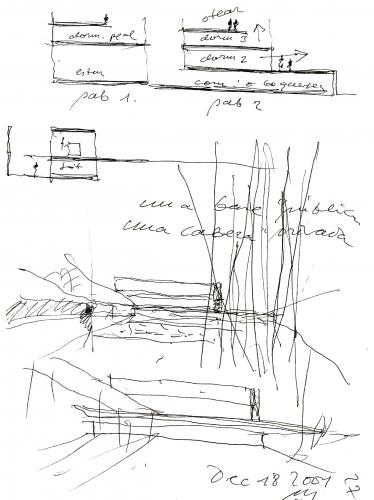 otear
dorm. ppal
dorm 3
estar
dorm 2
pab 1.
com
pab 2
una base pública
una cabeza privada
Dec 18 2001